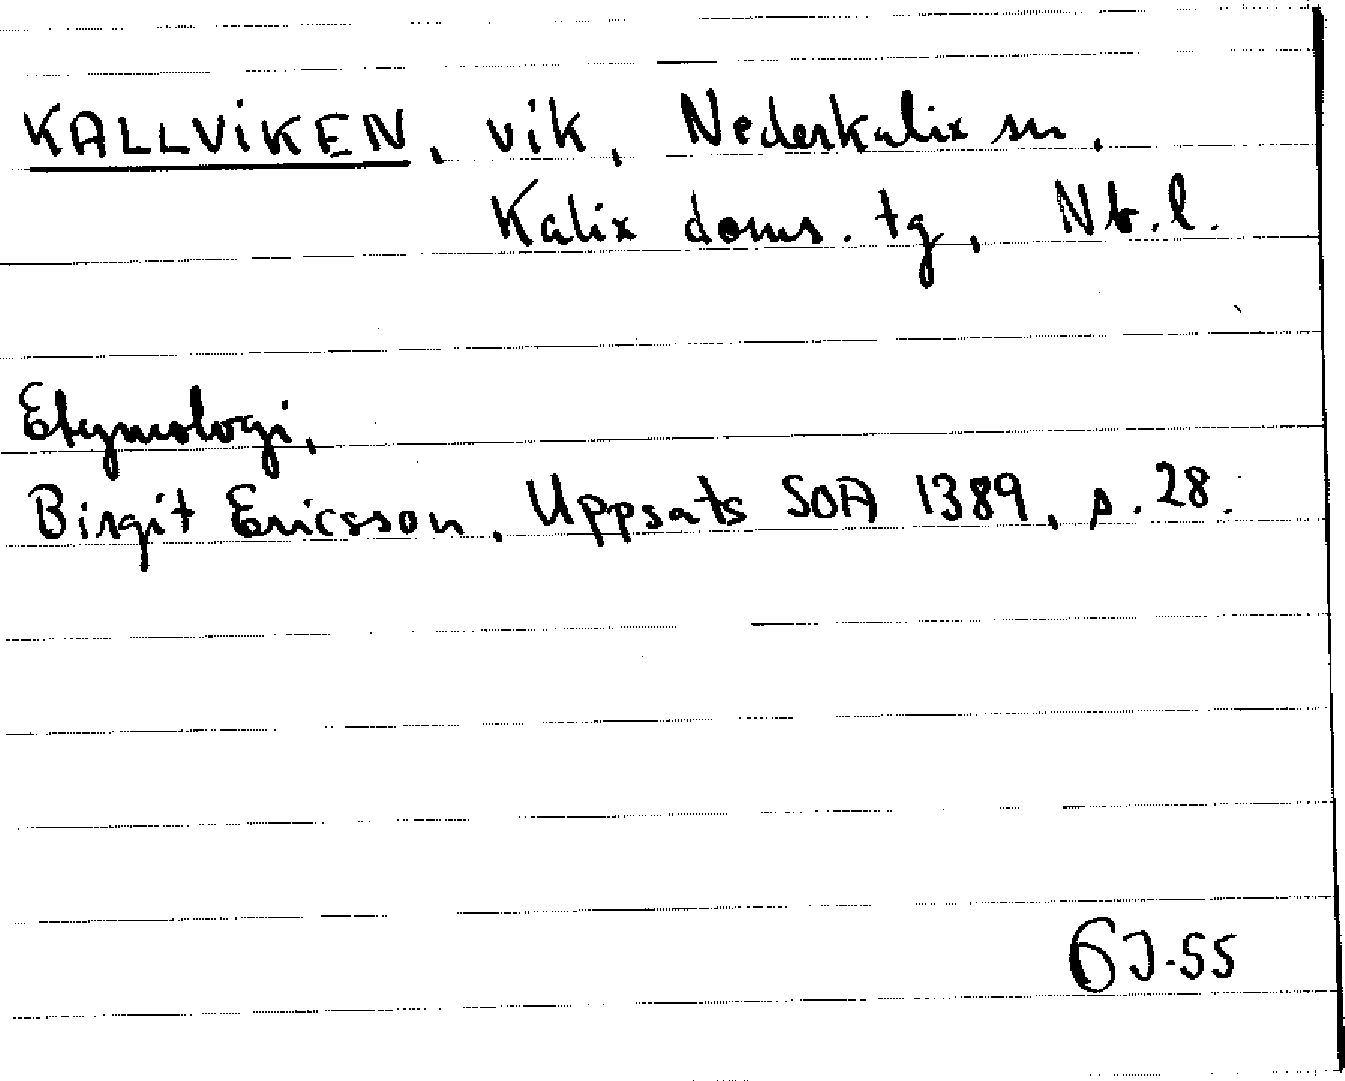 KALLVIKEN, vik, Nederkalix sn,
Kalix doms. tg, Nb. l.
Etymologi,
Birgit Ericsson, Uppsats SOA 1389, s. 28.